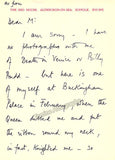 THE RED HOUSE, ALDEBURGH-ON-SEA, SUFFOLK
Dear M:
I am sorry - I have
no photographs with me
of Death in Venice or Billy
Budd - but here is one
of myself at Buckingham
Palace in February, when
the Queen hitched me and put
the ribbon round my neck,
in fact, knighted me - so